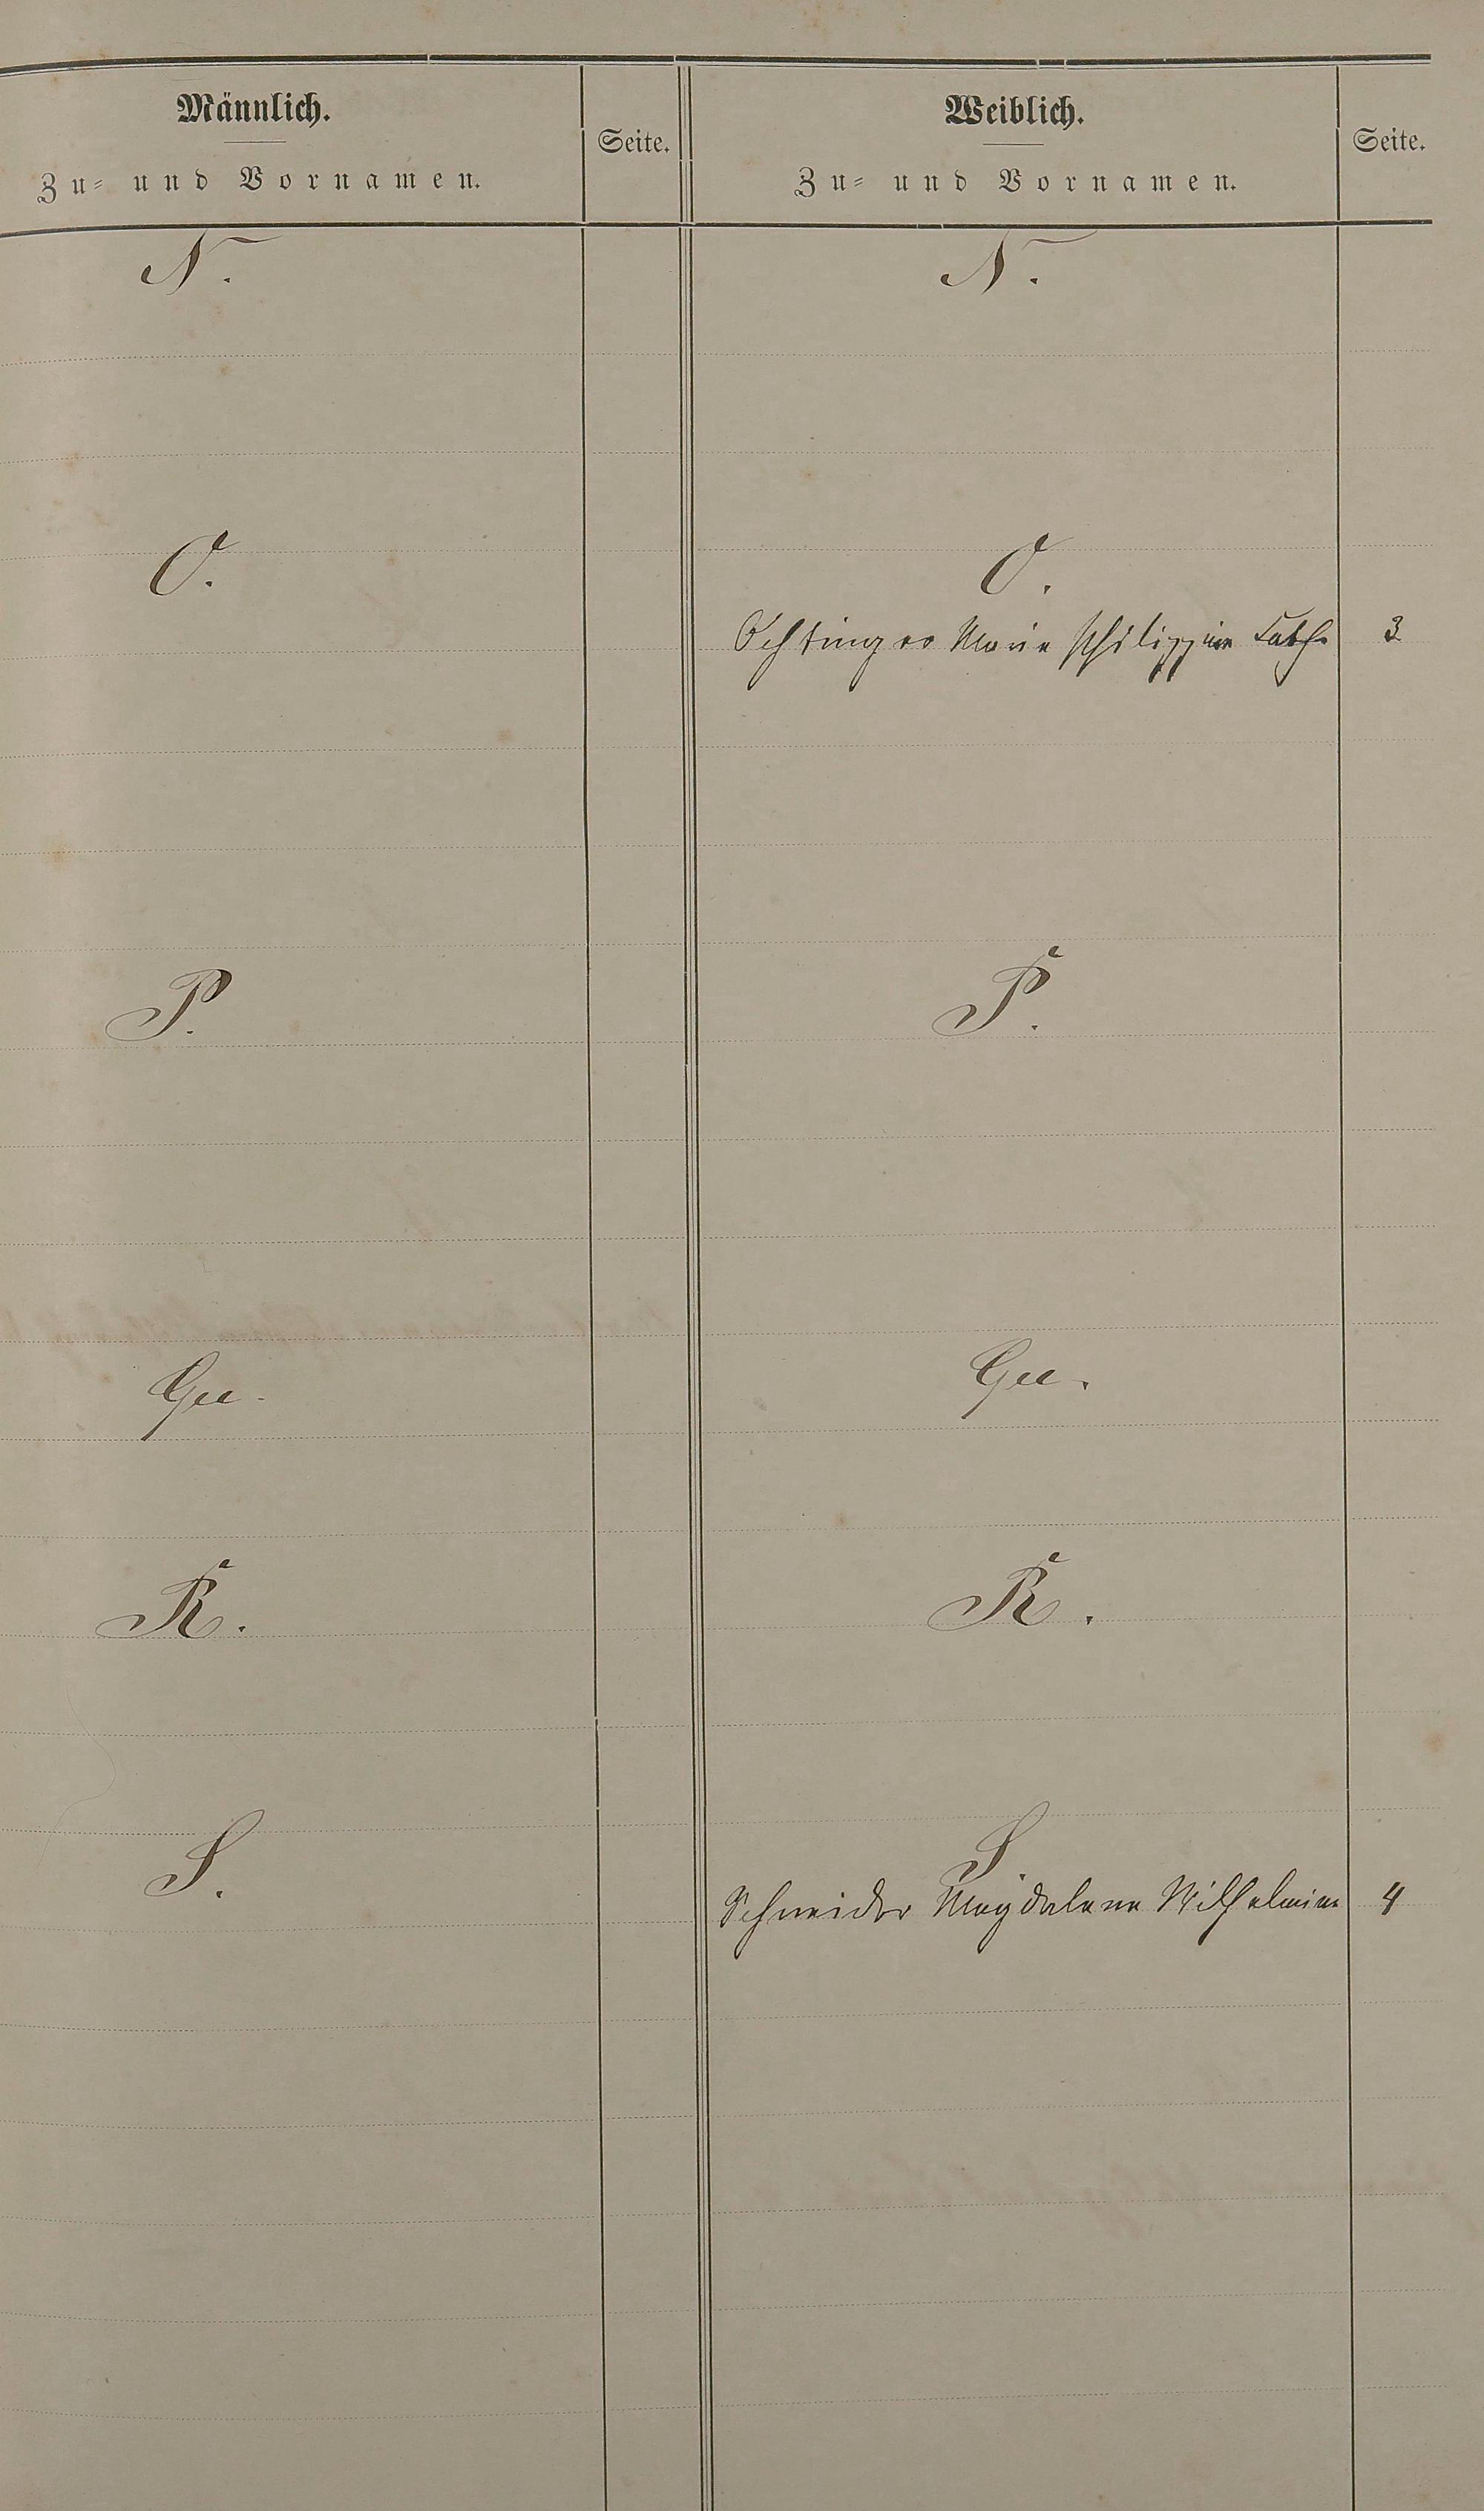 Männlich.
Zu- und Vornamen.
Seite.
Weiblich.
Zu- und Vornamen.
Seite.
N.
N.
O.
O.
Öchtinger Marie Philippine Kath. 3
P.
P.
Qu.
Qu.
R.
R.
S.
S.
Schneider Magdalena Wilhelmine 4